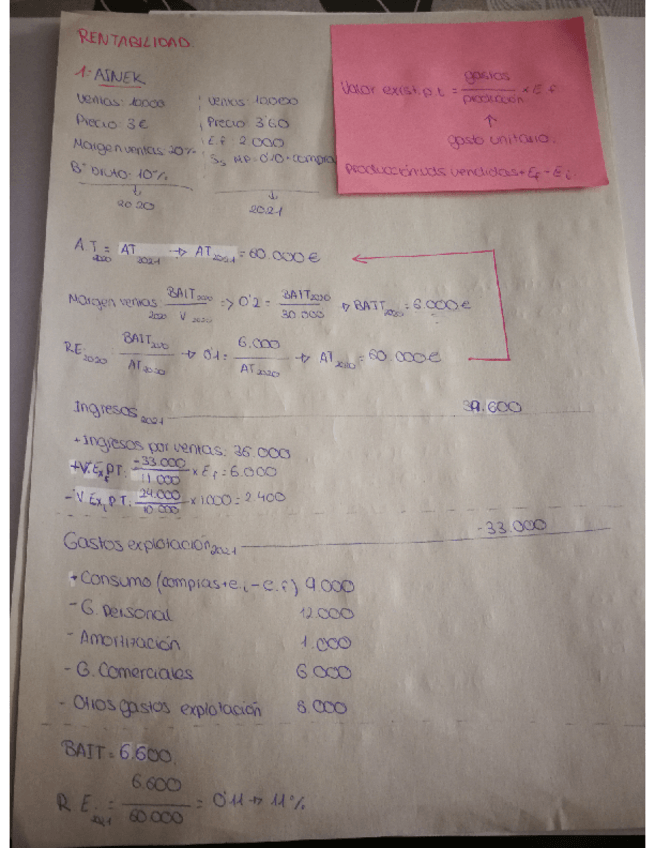 RENTABILIDAD.
1. AINEK
Ventas: 10000
Precio: 3€
Margen ventas: 20%
Bº Bruto: 10%
↓
2020
Ventas: 10000
Precio: 3'60
E.F: 2.000
↓
2021
Valor exist. p.t = gastos / producción × E f
↑
gasto unitario.
Producción: uds vendidas + Ef - Ei
A.T 2020 = AT 2021 → AT 2021 = 60.000€
Margen ventas 2020: BAIT 2020 / V 2020 => 0'2 = BAIT 2020 / 30.000 → BAIT 2020 = 6.000€
RE 2020: BAIT 2020 / AT 2020 → 0'1 = 6.000 / AT 2020 → AT 2020 = 60.000€
Ingresos 2021 39.600
+ Ingresos por ventas: 36.000
+ V. Ex f P.T. -33.000 / 11.000 × E f = 6.000
- V Ex i P.T. 24.000 / 10.000 × 1000 = 2.400
Gastos explotación 2021 -33.000
+ Consumo (compras + e.i - e.f) 9.000
- G. Personal 12.000
- Amortización 1.000
- G. Comerciales 6.000
- Otros gastos explotación 5.000
BAIT = 6.600
R.E. 2021 = 6.600 / 60.000 = 0'11 → 11%